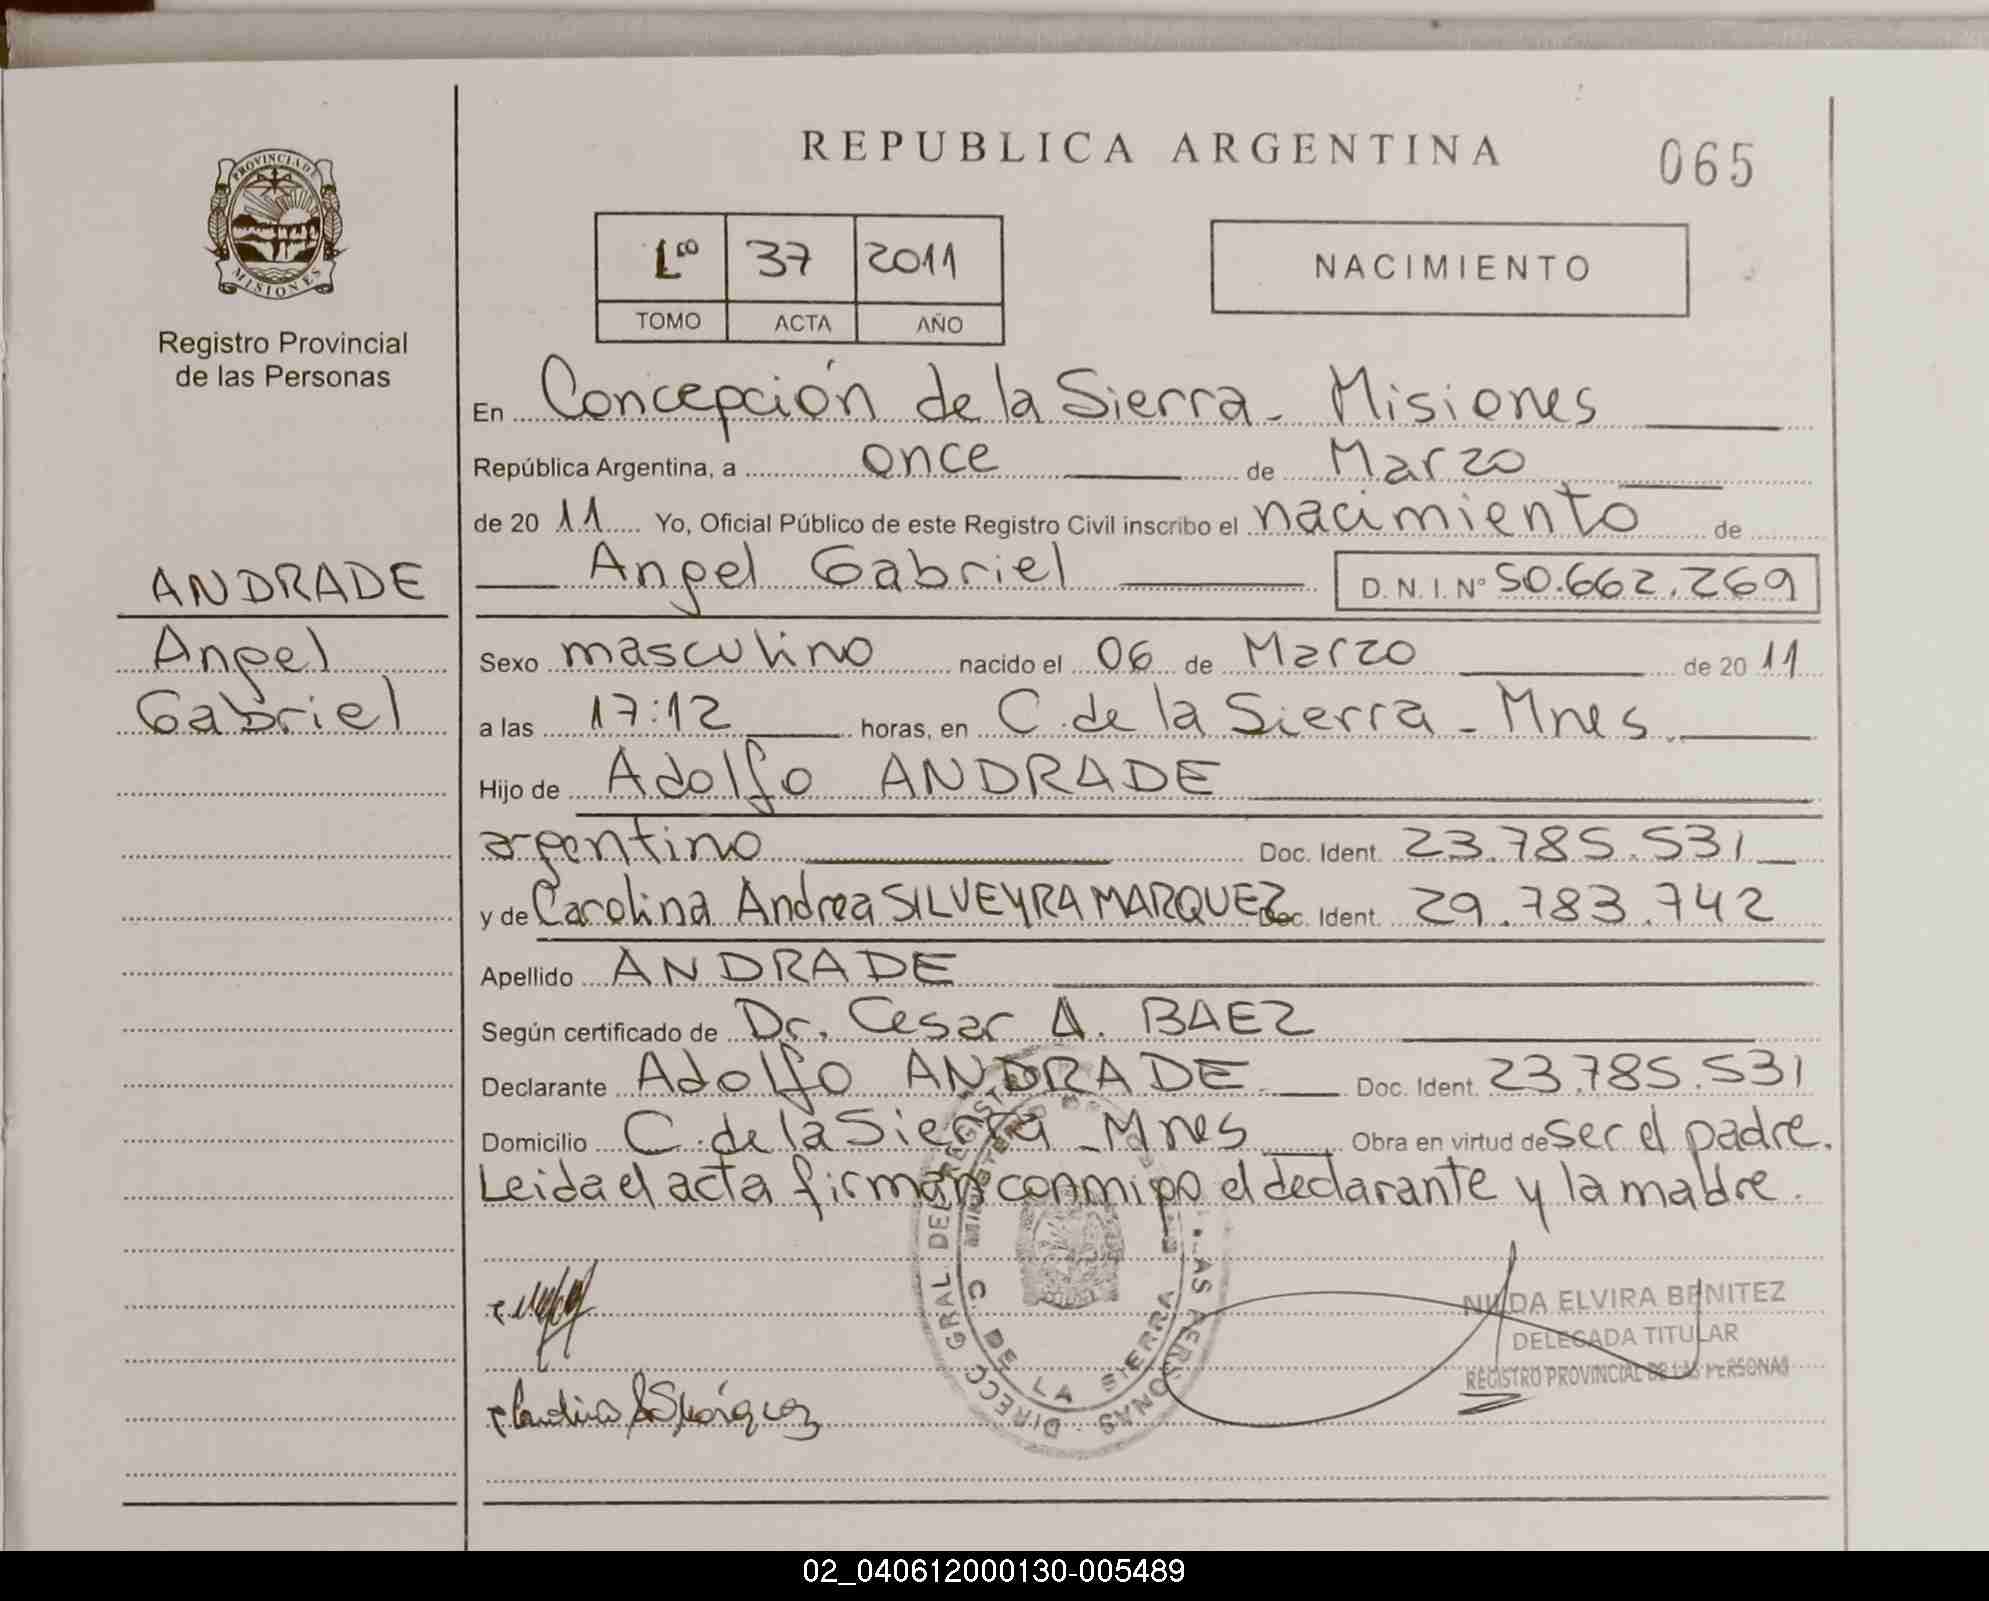 REPUBLICA ARGENTINA
065
PROVINCIA DE
MISIONES
Registro Provincial
de las Personas
1ro 37 2011
TOMO ACTA AÑO
NACIMIENTO
En Concepción de la Sierra - Misiones
República Argentina, a once de Marzo
de 20 11 Yo, Oficial Público de este Registro Civil inscribo el nacimiento de
Angel Gabriel D.N.I. Nº 50.662.269
ANDRADE
Angel
Gabriel
Sexo masculino nacido el 06 de Marzo de 20 11
a las 17:12 horas, en C. de la Sierra - Mnes.
Hijo de Adolfo ANDRADE
argentino Doc. Ident. 23.785.531
y de Carolina Andrea SILVEYRA MARQUEZ Doc. Ident. 29.783.742
Apellido ANDRADE
Según certificado de Dr. Cesar A. BAEZ
Declarante Adolfo ANDRADE Doc. Ident. 23.785.531
Domicilio C. de la Sierra - Mnes Obra en virtud de ser el padre.
Leida el acta firman conmigo el declarante y la madre.
DIRECC. GRAL. DEL REGIST. LAS PERSONAS
C. DE LA SIERRA
NILDA ELVIRA BENITEZ
DELEGADA TITULAR
REGISTRO PROVINCIAL DE LAS PERSONAS
02_040612000130-005489